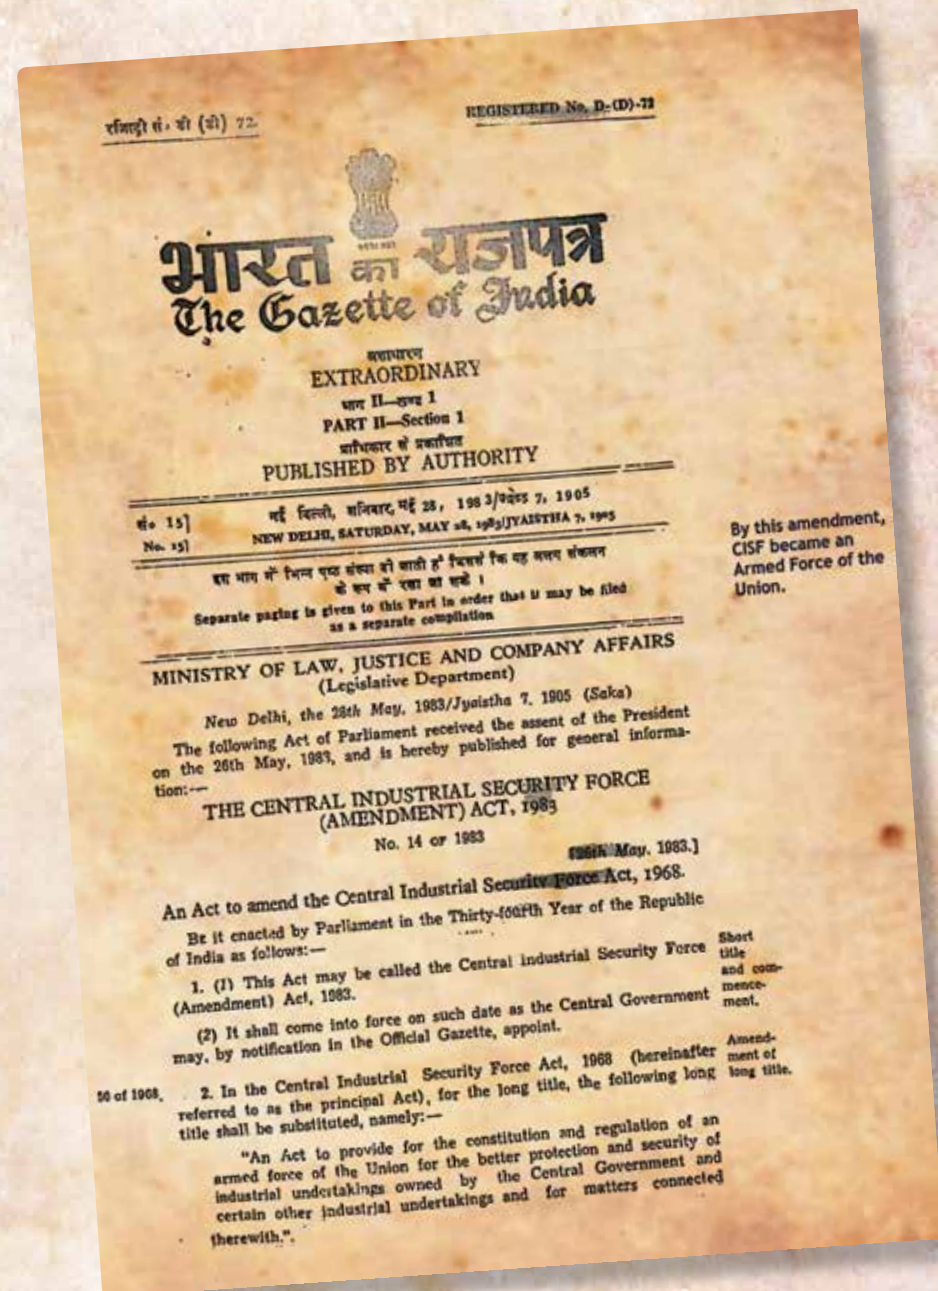 रजिस्ट्री सं॰ डी (डी) 72
REGISTERED No. D-(D)-72
भारत का राजपत्र
The Gazette of India
असाधारण
EXTRAORDINARY
भाग II—खण्ड 1
PART II—Section 1
प्राधिकार से प्रकाशित
PUBLISHED BY AUTHORITY
सं॰ 15]
नई दिल्ली, शनिवार, मई 28, 1983/ज्येष्ठ 7, 1905
No. 15]
NEW DELHI, SATURDAY, MAY 28, 1983/JYAISTHA 7, 1905
इस भाग में भिन्न पृष्ठ संख्या दी जाती है जिससे कि यह अलग संकलन
के रूप में रखा जा सके ।
Separate paging is given to this Part in order that it may be filed
as a separate compilation
By this amendment,
CISF became an
Armed Force of the
Union.
MINISTRY OF LAW, JUSTICE AND COMPANY AFFAIRS
(Legislative Department)
New Delhi, the 28th May, 1983/Jyaistha 7, 1905 (Saka)
The following Act of Parliament received the assent of the President
on the 26th May, 1983, and is hereby published for general informa-
tion:—
THE CENTRAL INDUSTRIAL SECURITY FORCE
(AMENDMENT) ACT, 1983
No. 14 OF 1983
[26th May, 1983.]
An Act to amend the Central Industrial Security Force Act, 1968.
Be it enacted by Parliament in the Thirty-fourth Year of the Republic
of India as follows:—
1. (1) This Act may be called the Central Industrial Security Force
(Amendment) Act, 1983.
Short
title
and com-
mence-
ment.
(2) It shall come into force on such date as the Central Government
may, by notification in the Official Gazette, appoint.
50 of 1968.
2. In the Central Industrial Security Force Act, 1968 (hereinafter
referred to as the principal Act), for the long title, the following long
title shall be substituted, namely:—
Amend-
ment of
long title.
"An Act to provide for the constitution and regulation of an
armed force of the Union for the better protection and security of
industrial undertakings owned by the Central Government and
certain other industrial undertakings and for matters connected
therewith.".